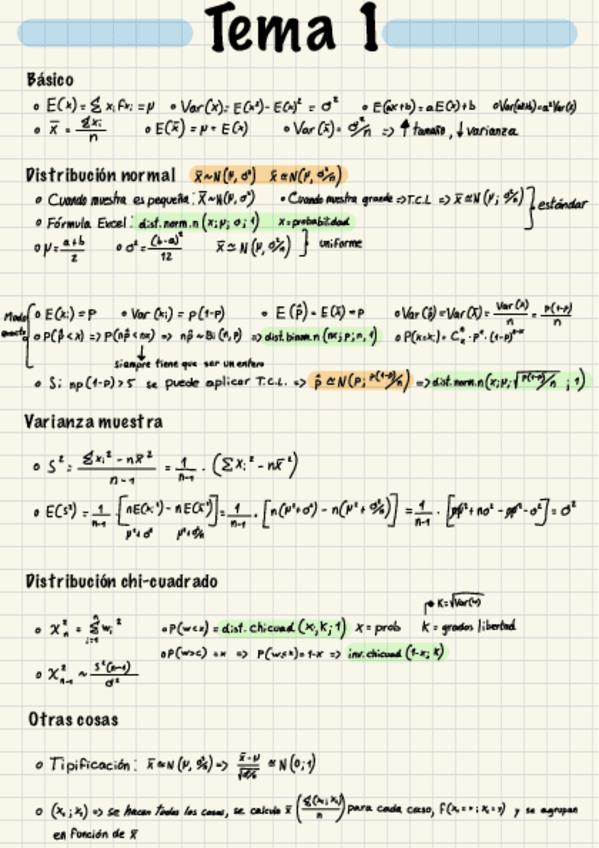 Tema 1
Básico
• E(x) = Σ xᵢ fxᵢ = μ • Var(x) = E(x²) - E(x)² = σ² • E(ax+b) = aE(x)+b • Var(ax+b) = a²Var(x)
• x̄ = Σxᵢ/n • E(x̄) = μ = E(x) • Var(x̄) = σ²/n => ↑ tamaño, ↓ varianza
Distribución normal x̄~N(μ, σ²) x̄≃N(μ, σ²/n)
• Cuando muestra es pequeña: x̄~N(μ, σ²) • Cuando muestra grande => T.C.L => x̄≃N(μ; σ²/n) } estándar
• Fórmula Excel: dist.norm.n(x; μ; σ; 1) x = probabilidad
• μ = a+b/2 • σ² = (b-a)²/12 x̄≃N(μ, σ²/n) } uniforme
• E(xᵢ) = p • Var(xᵢ) = p(1-p) • E(p̂) = E(x̄) = p • Var(p̂) = Var(x̄) = Var(x)/n = p(1-p)/n
• P(p̂<x) => P(np̂<nx) => np̂~Bi(n, p) => dist.binom.n(nx; p; n, 1)
↓
siempre tiene que ser un entero
• Si np(1-p) > 5 se puede aplicar T.C.L. => p̂≃N(p; p(1-p)/n) => dist.norm.n(x; μ; √p(1-p)/n ; 1)
Varianza muestra
• S² = Σxᵢ² - nx̄²/n-1 = 1/n-1 · (Σxᵢ² - nx̄²)
• E(s²) = 1/n-1 · [nE(xᵢ²) - nE(x̄²)] = 1/n-1 · [n(μ²+σ²) - n(μ² + σ²/n)] = 1/n-1 · [nμ² + nσ² - nμ² - σ²] = σ²
μ²+σ² μ²+σ²/n
Distribución chi-cuadrado
K = √Var(w)
• χ²ₙ = Σ wᵢ² • P(w<x) = dist.chicuad(x, K; 1) x = prob K = grados libertad
• P(w>c) = x => P(w≤x) = 1-x => inv.chicuad(1-x; K)
• χ²ₙ₋₁ ~ s²(n-1)/σ²
Otras cosas
• Tipificación: x̄≃N(μ, σ²/n) => x̄-μ/√σ²/n ≃ N(0; 1)
• => se hacen todos los casos, se calcula x̄ para cada caso, y se agrupan
en función de x̄